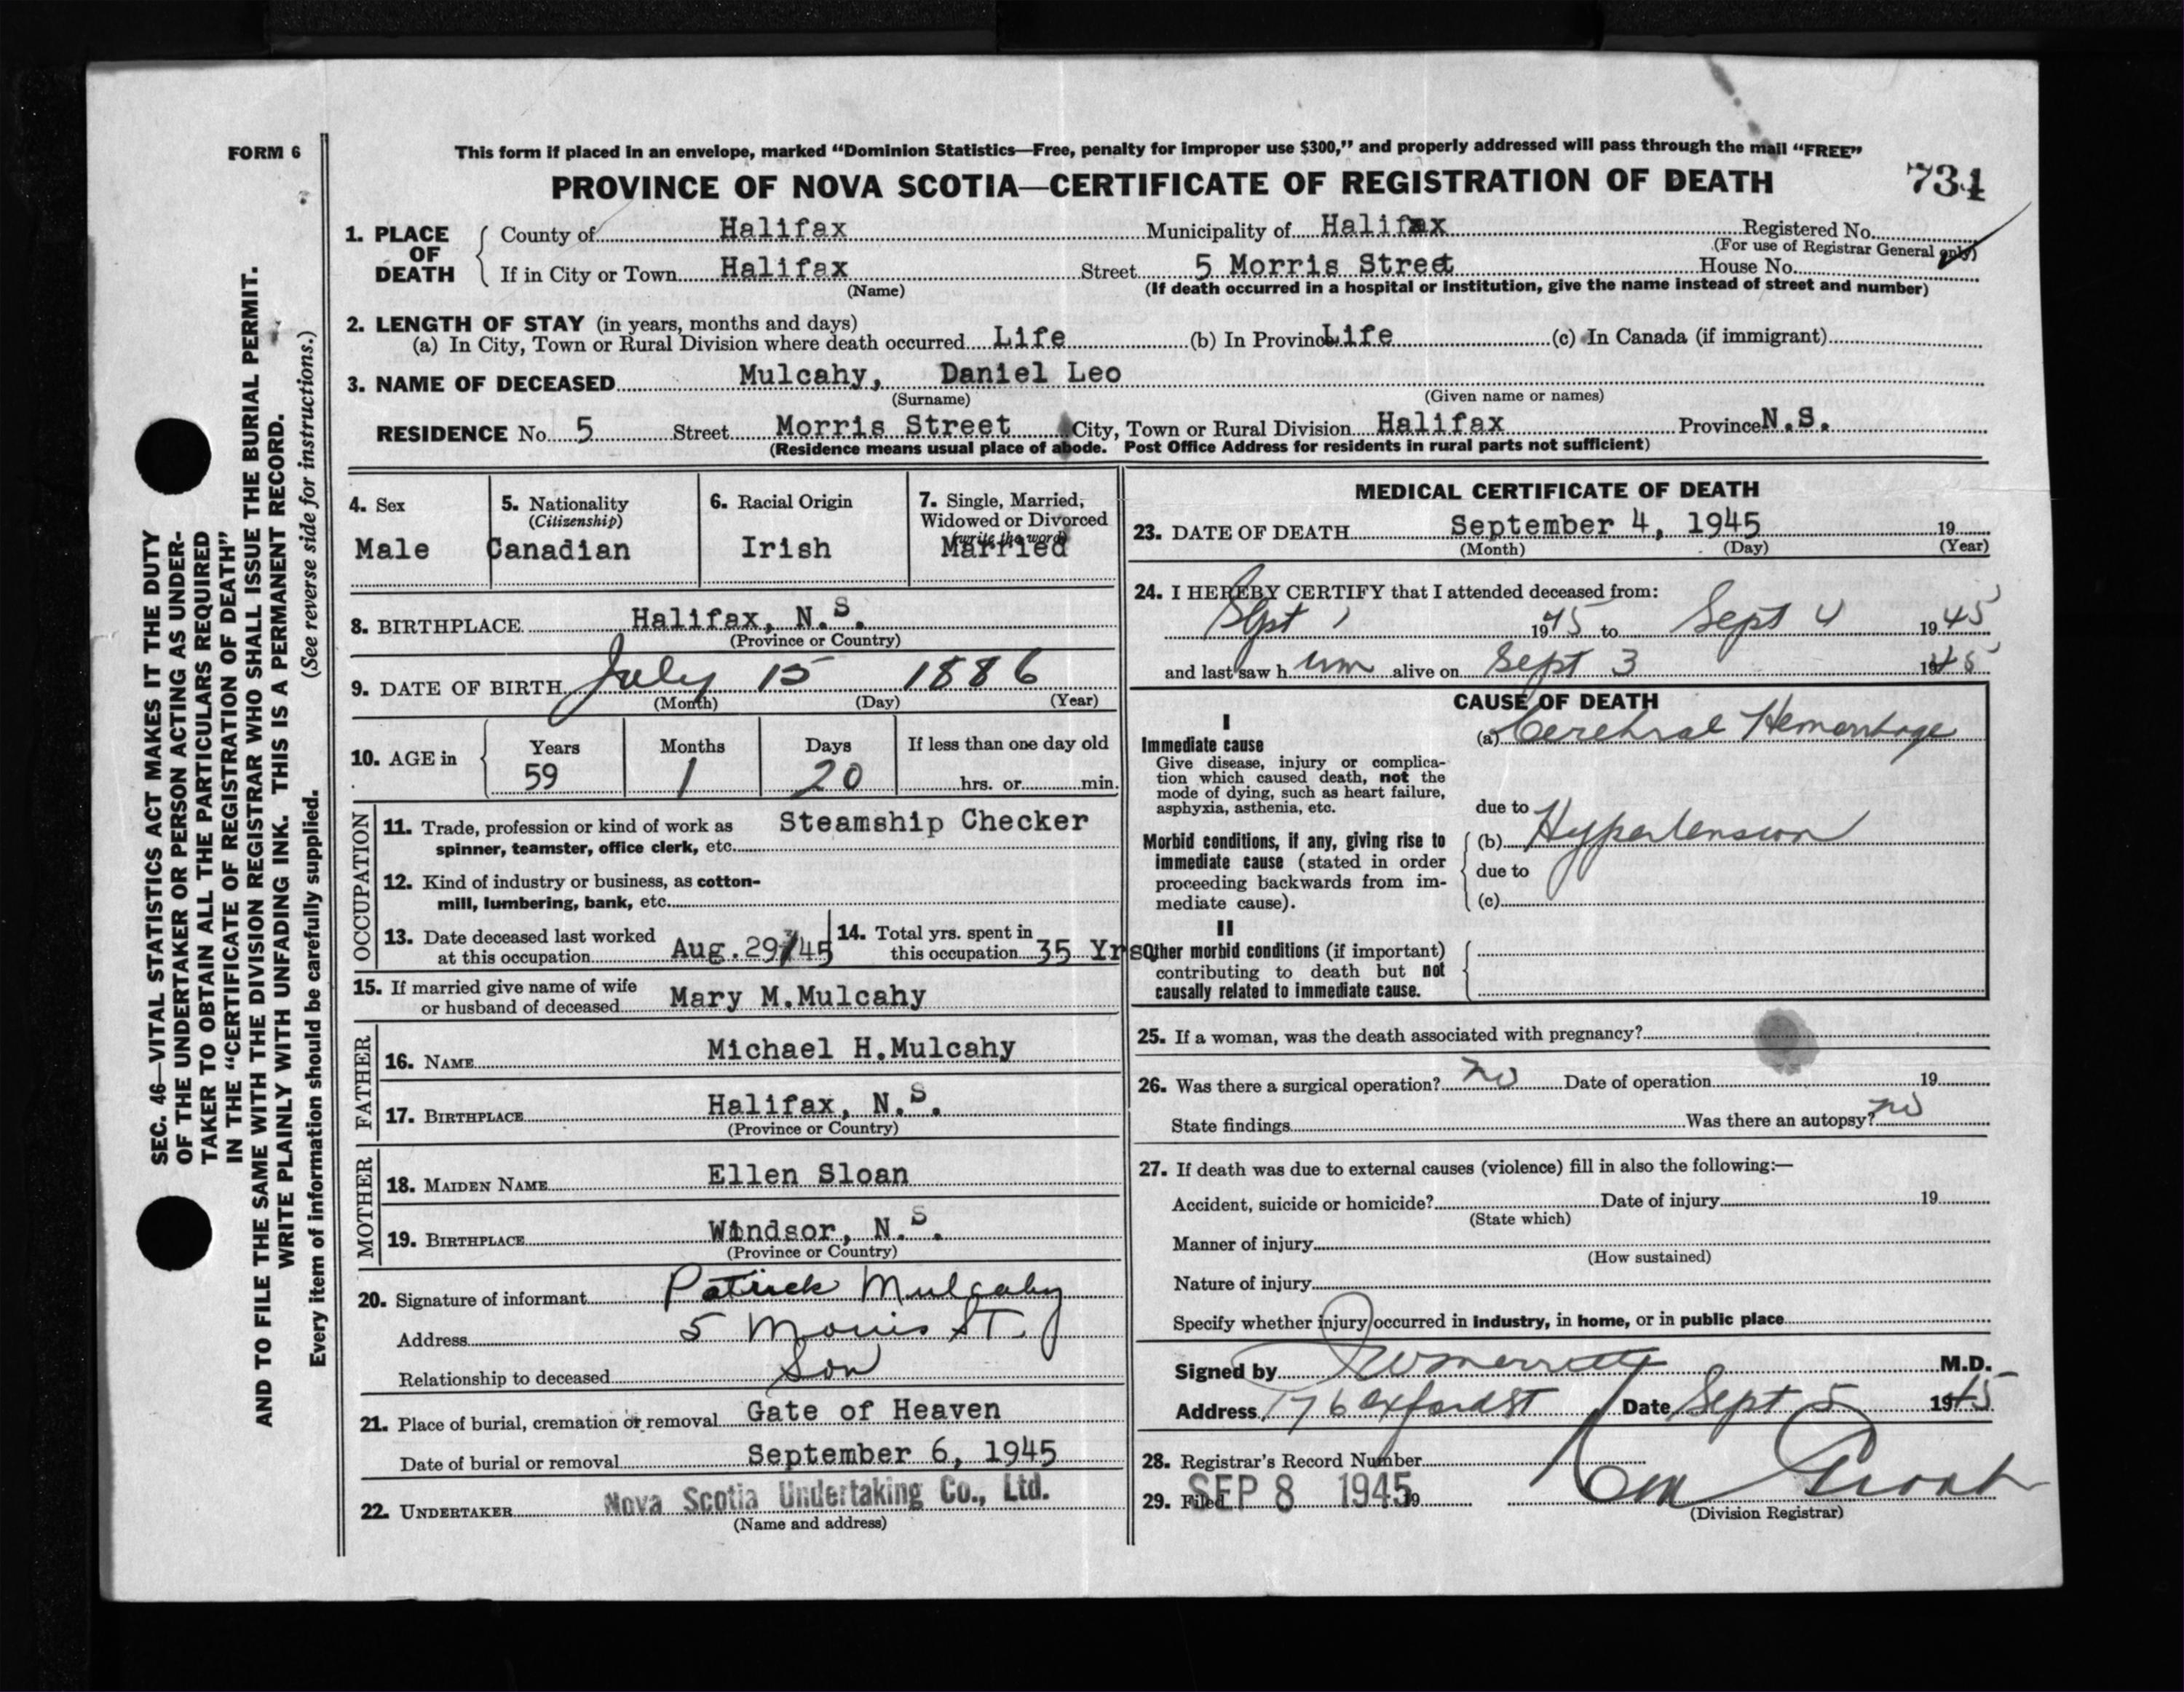 FORM 6
This form if placed in an envelope, marked “Dominion Statistics—Free, penalty for improper use $300,” and properly addressed will pass through the mail “FREE”
PROVINCE OF NOVA SCOTIA—CERTIFICATE OF REGISTRATION OF DEATH
731
1. PLACE OF DEATH
County of Halifax Municipality of Halifax Registered No.
(For use of Registrar General only)
If in City or Town Halifax Street 5 Morris Street House No.
(Name) (If death occurred in a hospital or institution, give the name instead of street and number)
2. LENGTH OF STAY (in years, months and days)
(a) In City, Town or Rural Division where death occurred Life (b) In Province Life (c) In Canada (if immigrant)
3. NAME OF DECEASED Mulcahy, Daniel Leo
(Surname) (Given name or names)
RESIDENCE No. 5 Street Morris Street City, Town or Rural Division Halifax Province N.S.
(Residence means usual place of abode. Post Office Address for residents in rural parts not sufficient)
4. Sex
Male
5. Nationality
(Citizenship)
Canadian
6. Racial Origin
Irish
7. Single, Married,
Widowed or Divorced
(write the word)
Married
8. BIRTHPLACE Halifax, N.S.
(Province or Country)
9. DATE OF BIRTH July 15 1886
(Month) (Day) (Year)
10. AGE in
Years Months Days If less than one day old
59 1 20 hrs. or min.
OCCUPATION
11. Trade, profession or kind of work as Steamship Checker
spinner, teamster, office clerk, etc.
12. Kind of industry or business, as cotton-
mill, lumbering, bank, etc.
13. Date deceased last worked
at this occupation Aug.29/45
14. Total yrs. spent in
this occupation 35 Yrs
15. If married give name of wife
or husband of deceased Mary M.Mulcahy
FATHER
16. NAME Michael H.Mulcahy
17. BIRTHPLACE Halifax, N.S.
(Province or Country)
MOTHER
18. MAIDEN NAME Ellen Sloan
19. BIRTHPLACE Windsor, N.S.
(Province or Country)
20. Signature of informant Patrick Mulcahy
Address 5 Morris ST.
Relationship to deceased Son
21. Place of burial, cremation or removal Gate of Heaven
Date of burial or removal September 6, 1945
22. UNDERTAKER Nova Scotia Undertaking Co., Ltd.
(Name and address)
MEDICAL CERTIFICATE OF DEATH
23. DATE OF DEATH September 4, 1945 19
(Month) (Day) (Year)
24. I HEREBY CERTIFY that I attended deceased from:
Sept 1 1945 to Sept 4 1945
and last saw h im alive on Sept 3 1945
CAUSE OF DEATH
I
Immediate cause
Give disease, injury or complica-
tion which caused death, not the
mode of dying, such as heart failure,
asphyxia, asthenia, etc.
(a) Cerebral Hemorrhage
due to
Morbid conditions, if any, giving rise to
immediate cause (stated in order
proceeding backwards from im-
mediate cause).
(b) Hypertension
due to
(c)
II
Other morbid conditions (if important)
contributing to death but not
causally related to immediate cause.
25. If a woman, was the death associated with pregnancy?
26. Was there a surgical operation? no Date of operation 19
State findings Was there an autopsy? no
27. If death was due to external causes (violence) fill in also the following:—
Accident, suicide or homicide? Date of injury 19
(State which)
Manner of injury
(How sustained)
Nature of injury
Specify whether injury occurred in industry, in home, or in public place
Signed by M.D.
Address 176 Oxford ST Date Sept 5 1945
28. Registrar's Record Number
29. Filed SEP 8 1945 19
(Division Registrar)
SEC. 46—VITAL STATISTICS ACT MAKES IT THE DUTY
OF THE UNDERTAKER OR PERSON ACTING AS UNDER-
TAKER TO OBTAIN ALL THE PARTICULARS REQUIRED
IN THE “CERTIFICATE OF REGISTRATION OF DEATH”
AND TO FILE THE SAME WITH THE DIVISION REGISTRAR WHO SHALL ISSUE THE BURIAL PERMIT.
WRITE PLAINLY WITH UNFADING INK. THIS IS A PERMANENT RECORD.
Every item of information should be carefully supplied. (See reverse side for instructions.)